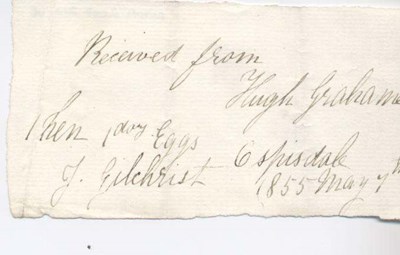 Received from
Hugh Graham
1 hen 1 doz Eggs
J. Gilchrist Ospisdale
1855 May 7th